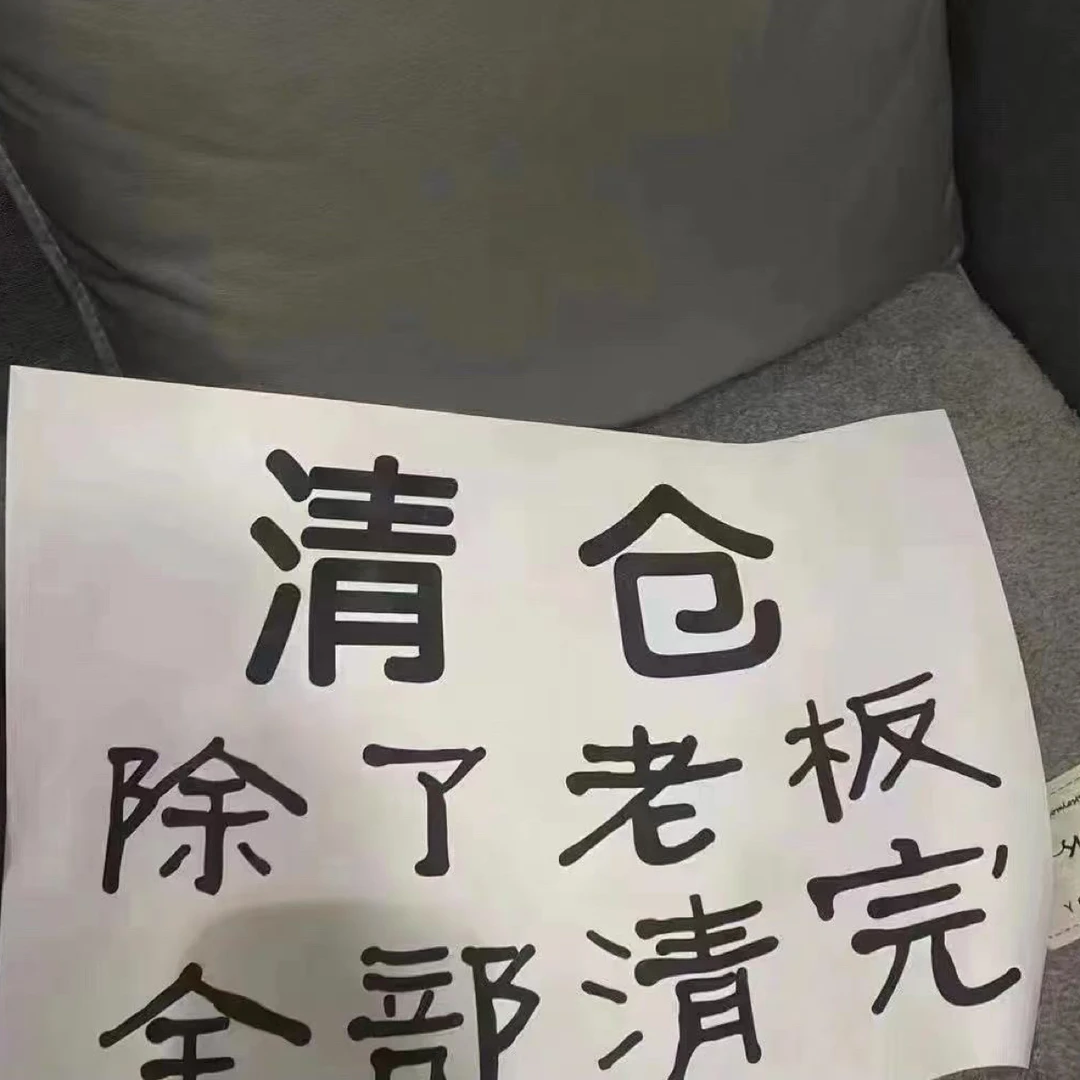 清仓
除了老板
全部清完